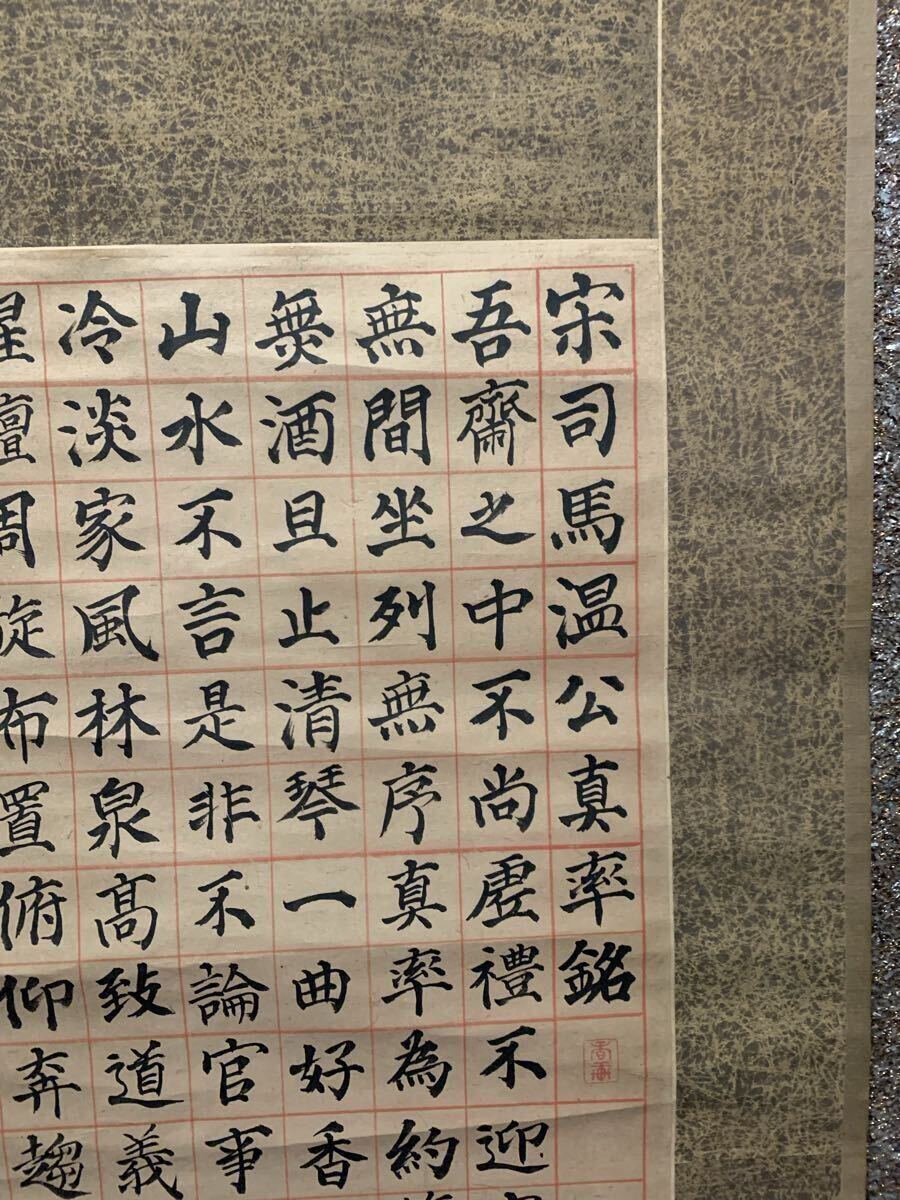 宋司馬温公真率銘
吾齋之中不尚虛禮不迎
無間坐列無序真率為約
無酒且止清琴一曲好香
山水不言是非不論官事
冷淡家風林泉高致道義
旋布置俯仰奔趨